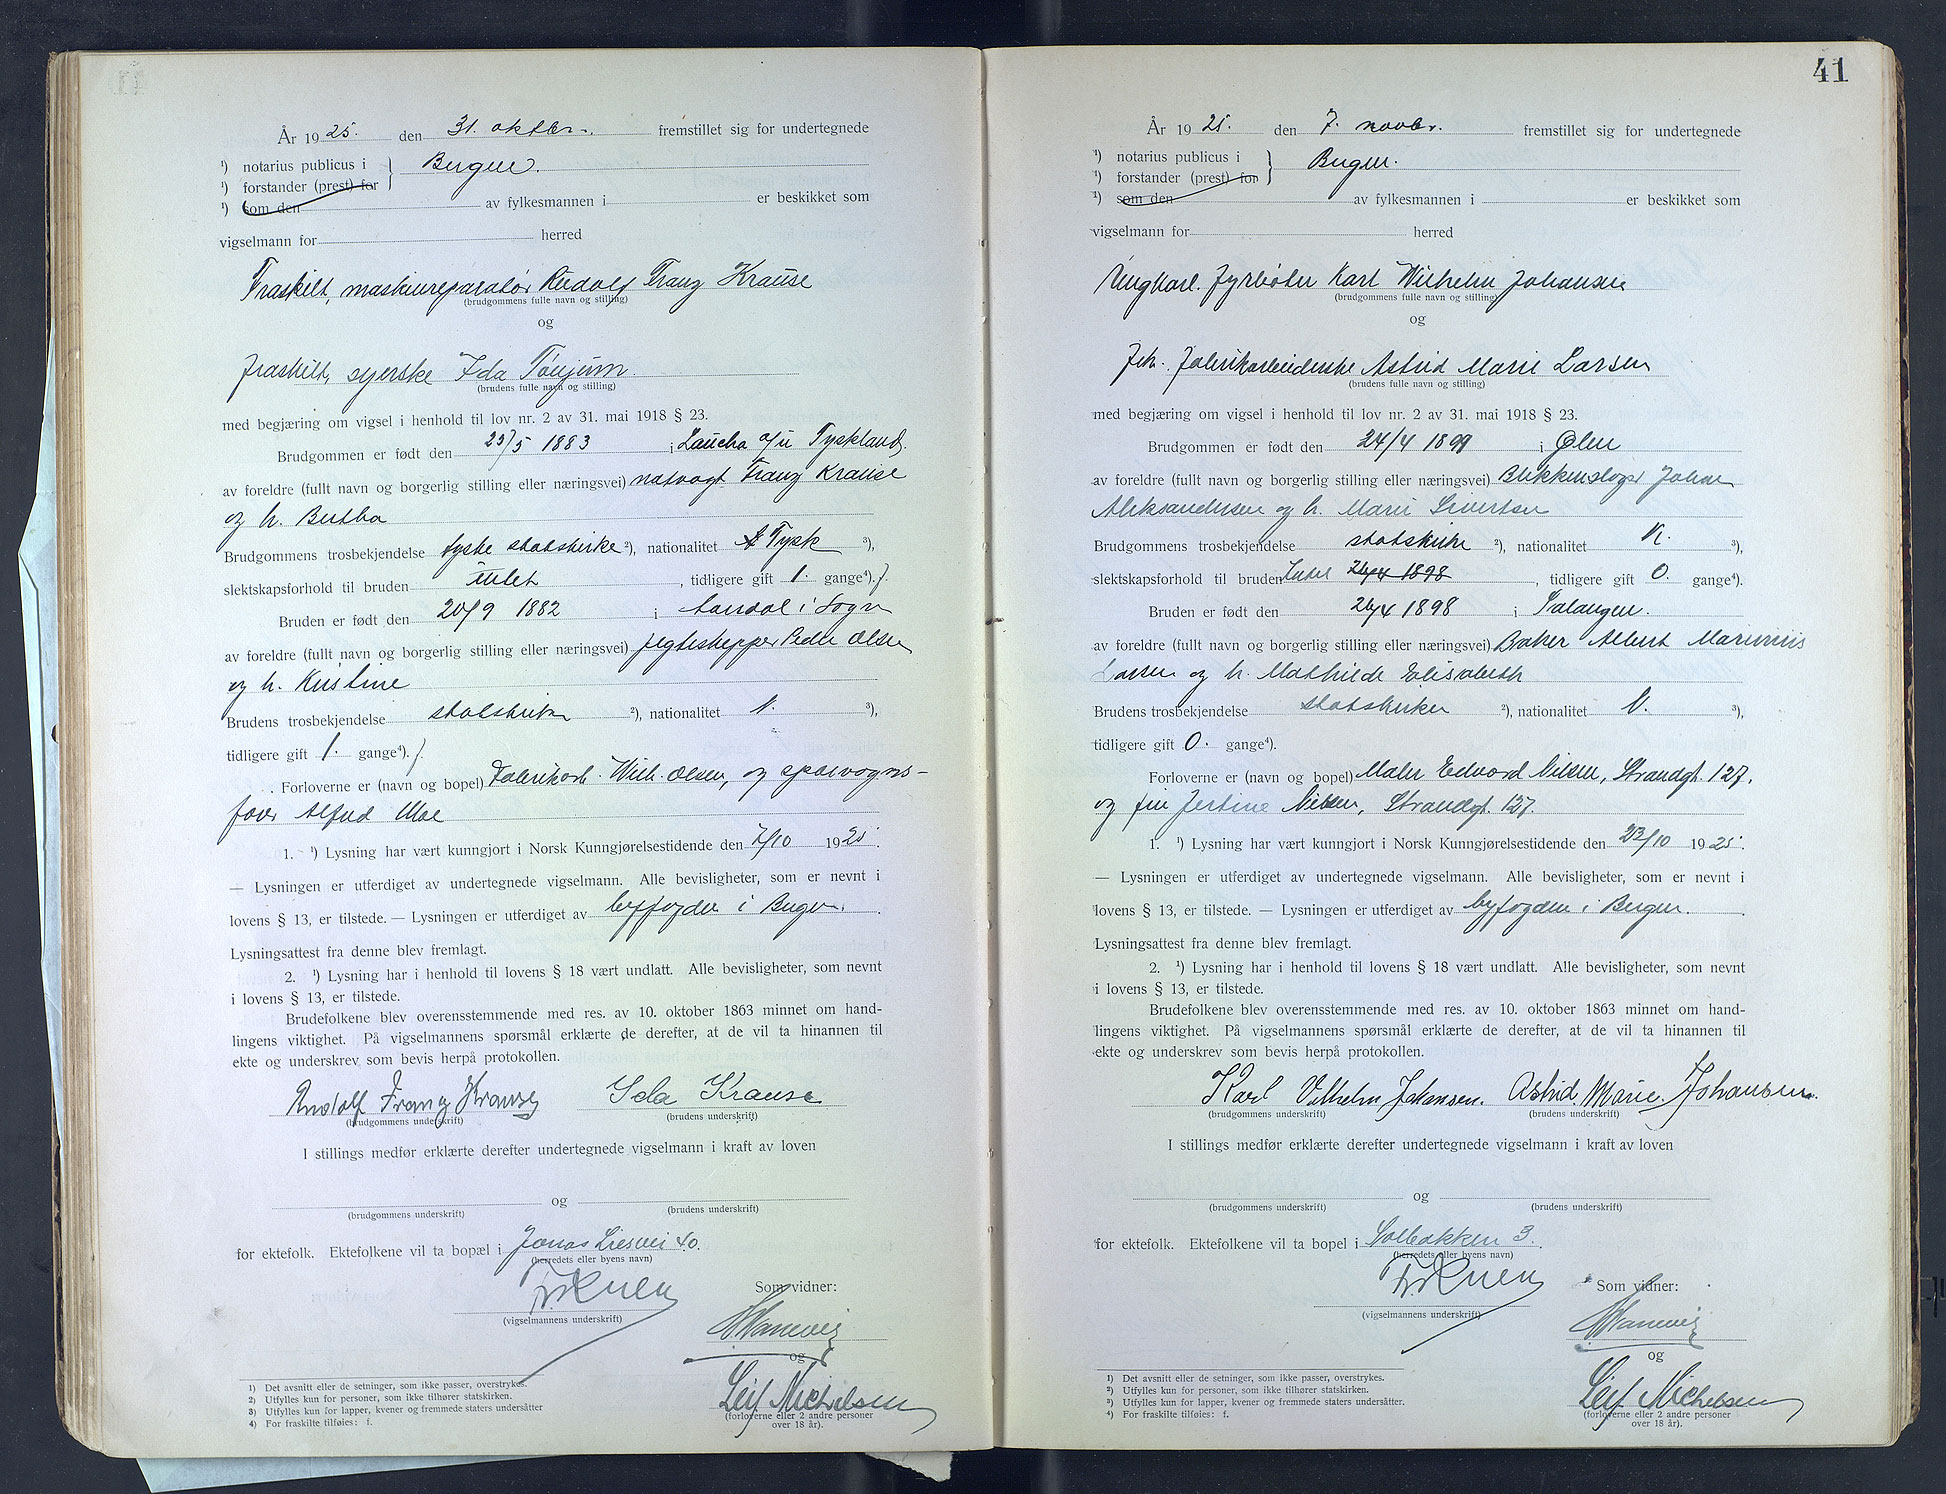 År 1925. den 31. oktbr. fremstillet sig for undertegnede
¹) notarius publicus i } Bergen.
¹) forstander (prest) for
¹) som den av fylkesmannen i er beskikket som
vigselmann for herred
Fraskilt, maskinreparatør Rudolf Franz Krause
(brudgommens fulle navn og stilling)
og
fraskilt, syerske Ida Tønjum.
(brudens fulle navn og stilling)
med begjæring om vigsel i henhold til lov nr. 2 av 31. mai 1918 § 23.
Brudgommen er født den 23/5 1883 i Laucha a/u Tyskland.
av foreldre (fullt navn og borgerlig stilling eller næringsvei) natvagt Franz Krause
og h. Bertha
Brudgommens trosbekjendelse tyske statskirke ²), nationalitet Tysk ³),
slektskapsforhold til bruden intet, tidligere gift 1. gange⁴). f.
Bruden er født den 20/9 1882 i Aardal i Sogn
av foreldre (fullt navn og borgerlig stilling eller næringsvei) jegteskipper Peder Olsen
og h. Kristine
Brudens trosbekjendelse statskirken ²), nationalitet N. ³),
tidligere gift 1. gange⁴). f.
Forloverne er (navn og bopel) Fabrikarb. Wilh. Olsen, og sporvogns-
fører Alfred Moe
1. ¹) Lysning har vært kunngjort i Norsk Kunngjørelsestidende den 7/10 1925.
— Lysningen er utferdiget av undertegnede vigselmann. Alle bevisligheter, som er nevnt i
lovens § 13, er tilstede. — Lysningen er utferdiget av byfogden i Bergen.
Lysningsattest fra denne blev fremlagt.
2. ¹) Lysning har i henhold til lovens § 18 vært undlatt. Alle bevisligheter, som nevnt
i lovens § 13, er tilstede.
Brudefolkene blev overensstemmende med res. av 10. oktober 1863 minnet om hand-
lingens viktighet. På vigselmannens spørsmål erklærte de derefter, at de vil ta hinannen til
ekte og underskrev som bevis herpå protokollen.
Rudolf Franz Krause Ida Krause
(brudgommens underskrift) (brudens underskrift)
I stillings medfør erklærte derefter undertegnede vigselmann i kraft av loven
og
(brudgommens underskrift) (brudens underskrift)
for ektefolk. Ektefolkene vil ta bopæl i Jonas Liesvei 40.
(herredets eller byens navn)
Som vidner:
(vigselmannens underskrift)
og
Leif Michelsen
(forloverne eller 2 andre personer
over 18 år).
1) Det avsnitt eller de setninger, som ikke passer, overstrykes.
2) Utfylles kun for personer, som ikke tilhører statskirken.
3) Utfylles kun for lapper, kvener og fremmede staters undersåtter
4) For fraskilte tilføies: f.
41
År 1925. den 7. novbr. fremstillet sig for undertegnede
¹) notarius publicus i } Bergen.
¹) forstander (prest) for
¹) som den av fylkesmannen i er beskikket som
vigselmann for herred
Ungkarl. fyrbøter Karl Wilhelm Johansen
(brudgommens fulle navn og stilling)
og
Frk. fabrikarbeiderske Astrid Marie Larsen
(brudens fulle navn og stilling)
med begjæring om vigsel i henhold til lov nr. 2 av 31. mai 1918 § 23.
Brudgommen er født den 24/4 1899 i Ølen
av foreldre (fullt navn og borgerlig stilling eller næringsvei) Blikkenslager Johan
Aleksandersen og h. Marie Sivertsen
Brudgommens trosbekjendelse statskirke ²), nationalitet N. ³),
slektskapsforhold til bruden Intet 26/4 1898, tidligere gift 0. gange⁴).
Bruden er født den 26/4 1898 i Salangen.
av foreldre (fullt navn og borgerlig stilling eller næringsvei) Baker Albert Marinius
Larsen og h. Mathilde Elisabeth
Brudens trosbekjendelse statskirken ²), nationalitet N. ³),
tidligere gift 0. gange⁴).
Forloverne er (navn og bopel) Maler Edvard Nilsen, Strandgt. 127.
og fru Jertine Nilsen, Strandgt. 127.
1. ¹) Lysning har vært kunngjort i Norsk Kunngjørelsestidende den 23/10 1925.
— Lysningen er utferdiget av undertegnede vigselmann. Alle bevisligheter, som er nevnt i
lovens § 13, er tilstede. — Lysningen er utferdiget av byfogden i Bergen.
Lysningsattest fra denne blev fremlagt.
2. ¹) Lysning har i henhold til lovens § 18 vært undlatt. Alle bevisligheter, som nevnt
i lovens § 13, er tilstede.
Brudefolkene blev overensstemmende med res. av 10. oktober 1863 minnet om hand-
lingens viktighet. På vigselmannens spørsmål erklærte de derefter, at de vil ta hinannen til
ekte og underskrev som bevis herpå protokollen.
Karl Vilhelm Johansen. Astrid. Marie. Johansen.
(brudgommens underskrift) (brudens underskrift)
I stillings medfør erklærte derefter undertegnede vigselmann i kraft av loven
og
(brudgommens underskrift) (brudens underskrift)
for ektefolk. Ektefolkene vil ta bopel i Solbakken 3.
(herredets eller byens navn)
Som vidner:
(vigselmannens underskrift)
og
Leif Michelsen
(forloverne eller 2 andre personer
over 18 år).
¹) Det avsnitt eller de setninger, som ikke passer, overstrykes.
²) Utfylles kun for personer, som ikke tilhører statskirken.
³) Utfylles kun for lapper, kvener og fremmede staters undersåtter.
⁴) For fraskilte tilføies: f.